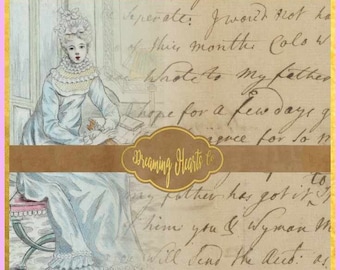 Seperate. I would not ha
of this months Colo W
Wrote to my father
hope for a few days g
agreece for So M
Dreaming Hearts Co
my father has got it to
him you & Wyman M
will send the Acct: as